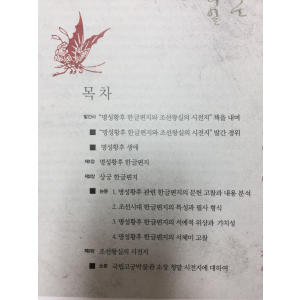 목차
발간사 "명성황후 한글편지와 조선왕실의 시전지" 책을 내며
■ "명성황후 한글편지와 조선왕실의 시전지" 발간 경위
■ 명성황후 생애
제1장 명성황후 한글편지
제2장 상궁 한글편지
■ 논문 1. 명성황후 관련 한글편지의 문헌 고찰과 내용 분석
2. 조선시대 한글편지의 특성과 필사 형식
3. 명성황후 한글편지의 서예적 위상과 가치성
4. 명성황후 한글편지의 서체미 고찰
제3장 조선왕실의 시전지
■ 논문 국립고궁박물관 소장 청말 시전지에 대하여